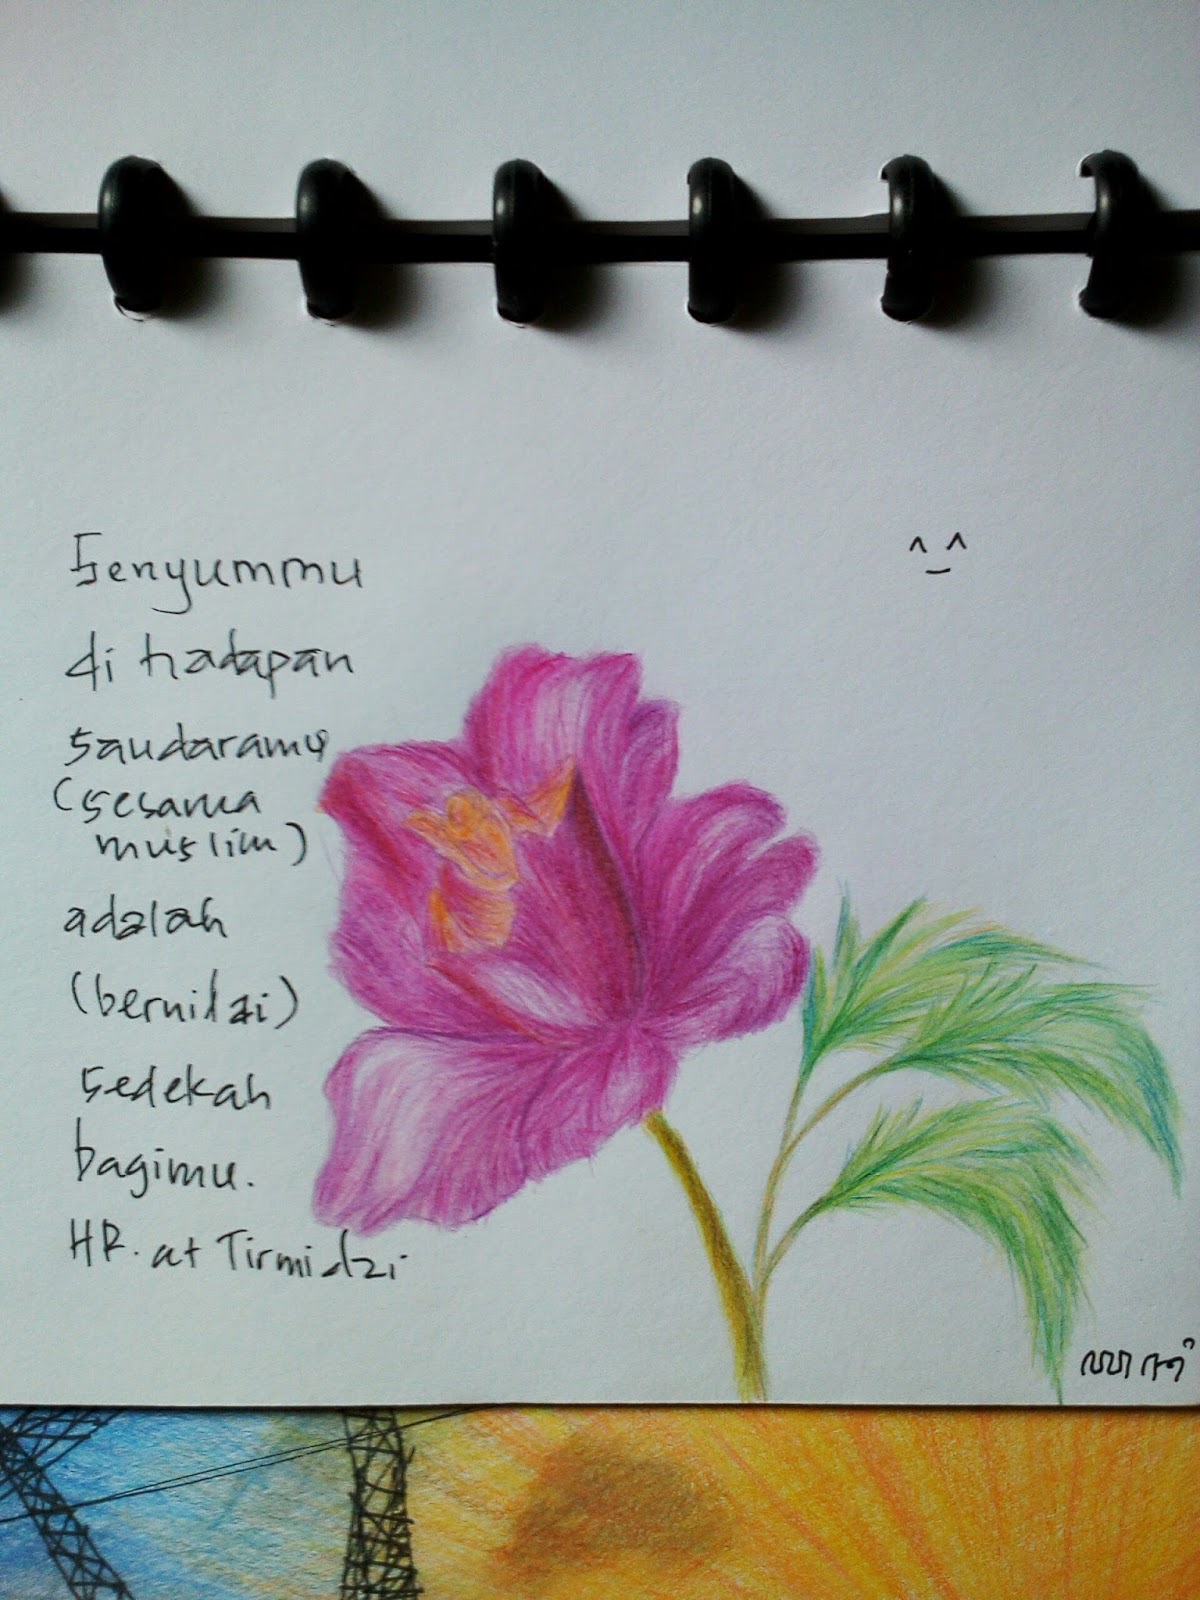 Senyummu
di hadapan
saudaramu
(sesama
muslim)
adalah
(bernilai)
sedekah
bagimu.
HR. at Tirmidzi